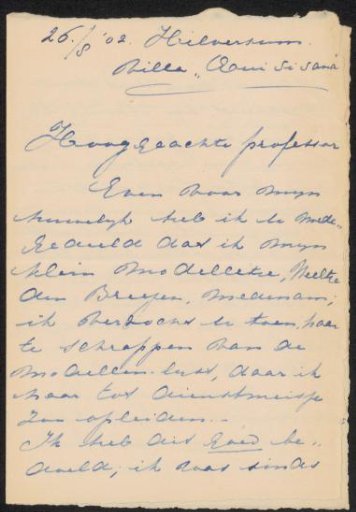 26/8 '02. Hilversum.
Villa "Qui si sana"
Hooggeachte professor
Even voor mijn
huwelijk heb ik U mede-
gedeeld dat ik mijn
klein modelletje, Neeltje
den Breejen, medenam;
ik verzocht U toen, haar
te schrappen van de
modellen-lijst, daar ik
haar tot dienstmeisje
zou opleiden.
Ik heb dit goed be-
doeld; ik was sinds